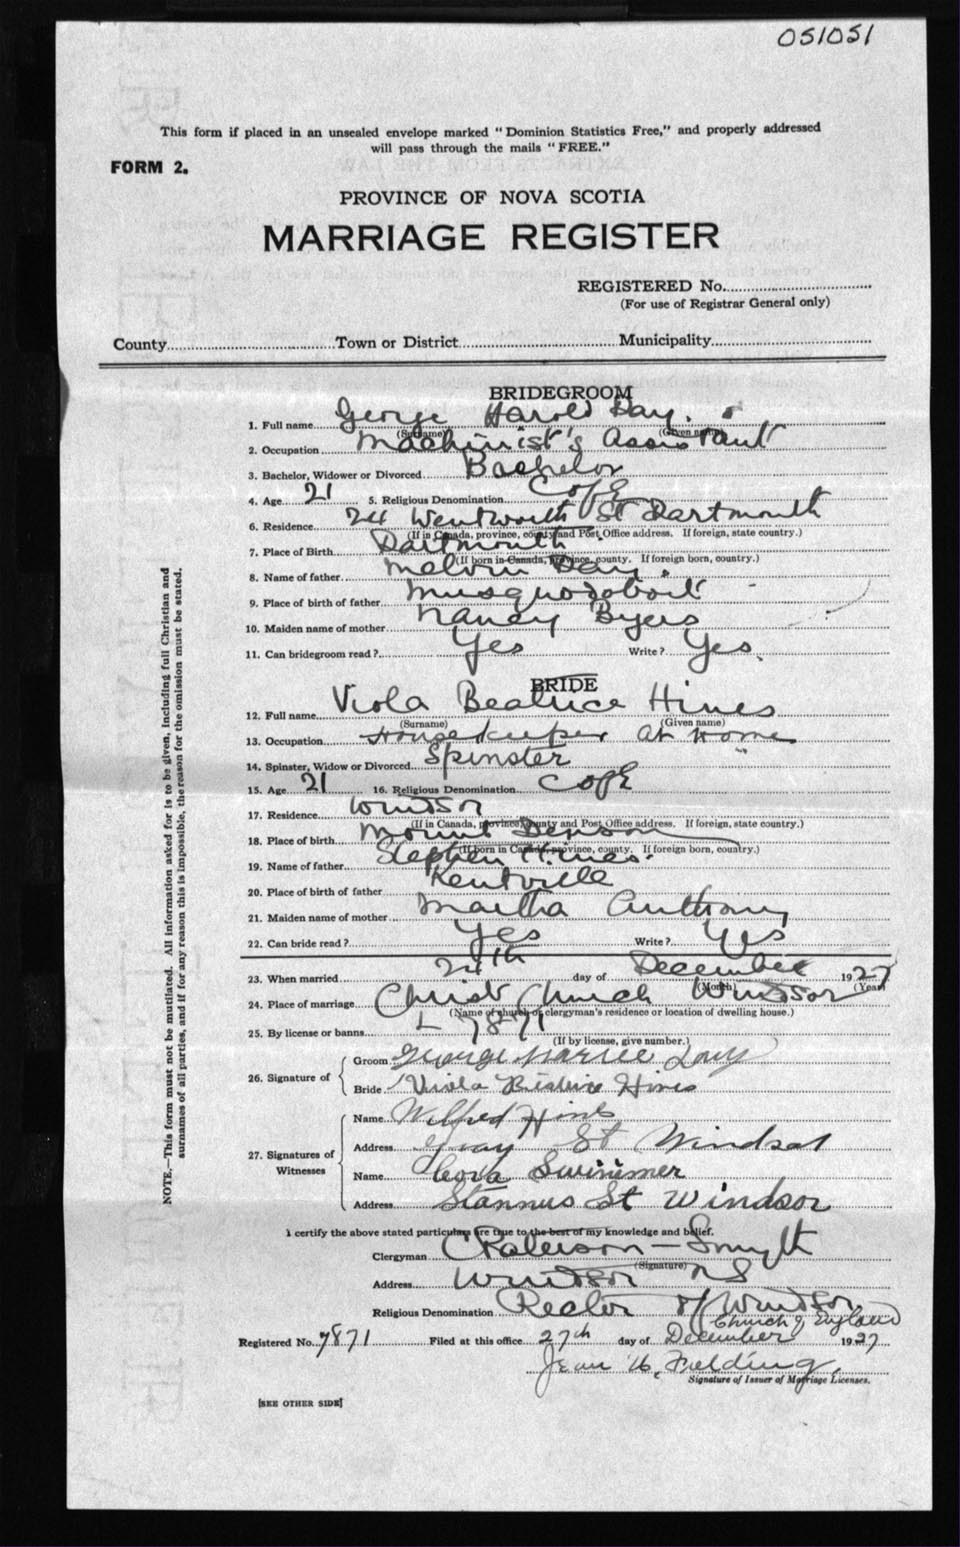 051051
This form if placed in an unsealed envelope marked "Dominion Statistics Free," and properly addressed
will pass through the mails "FREE."
FORM 2.
PROVINCE OF NOVA SCOTIA
MARRIAGE REGISTER
REGISTERED No.
(For use of Registrar General only)
County Town or District Municipality
BRIDEGROOM
1. Full name George Harold Day.
(Surname) (Given name)
2. Occupation Machinist's Assistant
3. Bachelor, Widower or Divorced Bachelor
4. Age 21 5. Religious Denomination C of E
6. Residence 24 Wentworth St Dartmouth
(If in Canada, province, county and Post Office address. If foreign, state country.)
7. Place of Birth Dartmouth
(If born in Canada, province, county. If foreign born, country.)
8. Name of father Melvin Day
9. Place of birth of father Musquodoboit
10. Maiden name of mother Nancy Byers
11. Can bridegroom read? Yes Write? Yes.
BRIDE
12. Full name Viola Beatrice Hines
(Surname) (Given name)
13. Occupation Housekeeper at Home
14. Spinster, Widow or Divorced Spinster
15. Age 21 16. Religious Denomination C of E
17. Residence Windsor
(If in Canada, province, county and Post Office address. If foreign, state country.)
18. Place of birth Mount Denson
(If born in Canada, province, county. If foreign born, country.)
19. Name of father Stephen Hines.
20. Place of birth of father Kentville
21. Maiden name of mother Martha Anthony
22. Can bride read? Yes Write? Yes
23. When married 24th day of December 1927
(Month) (Year)
24. Place of marriage Christ Church Windsor
(Name of church or clergyman's residence or location of dwelling house.)
25. By license or banns L 7871
(If by license, give number.)
26. Signature of Groom George Day
Bride Viola Beatrice Hines
27. Signatures of Witnesses Name Wilfred Hines
Address Gray St Windsor
Name Cora Swinimer
Address Stannus St Windsor
I certify the above stated particulars are true to the best of my knowledge and belief.
Clergyman Paterson-Smyth
(Signature)
Address Windsor NS
Religious Denomination Rector of Windsor
Church of England
Registered No. 7871 Filed at this office 27th day of December 1927
Jean W. Fielding,
Signature of Issuer of Marriage Licenses.
[SEE OTHER SIDE]
NOTE.—This form must not be mutilated. All information asked for is to be given, including full Christian and
surnames of all parties, and if for any reason this is impossible, the reason for the omission must be stated.